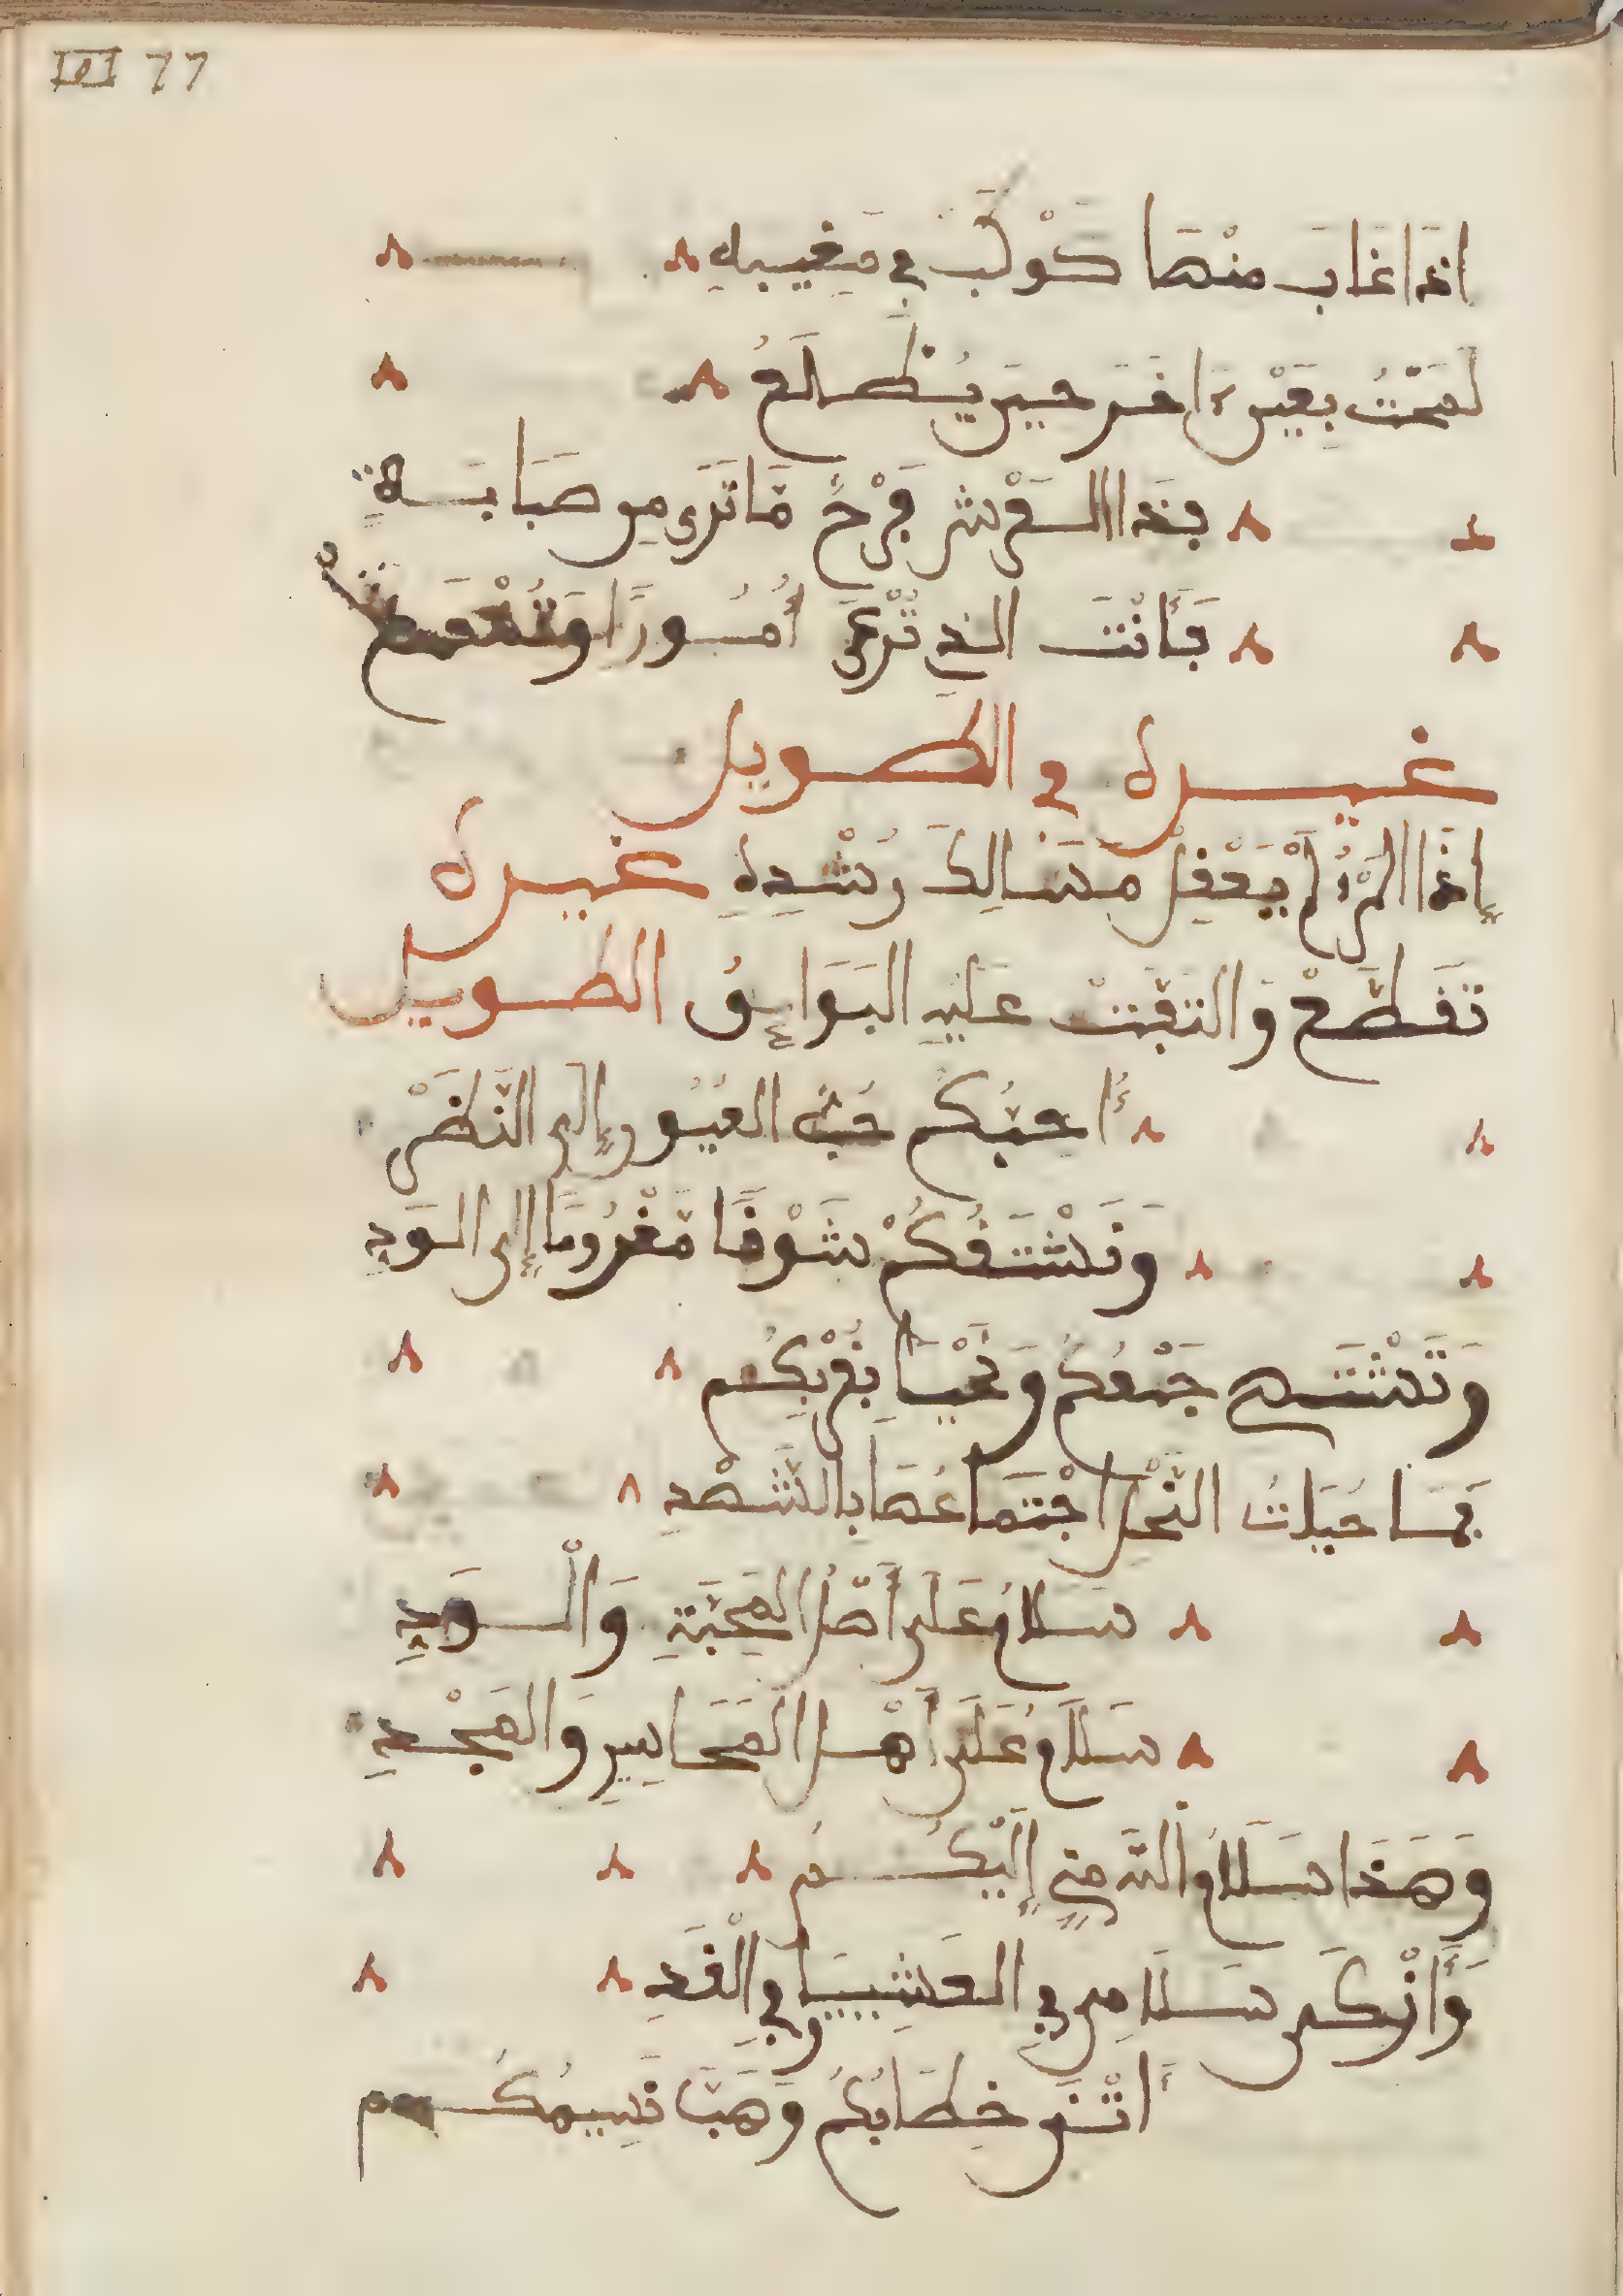 III 77
اذا غابَ منْهَا كَوْكَبٌ في مَغِيبِهِ
لَمَحْتُ بِعَيْن ءَاخَرَ حينَ يُطْلَعُ
فذا السفر يشرفي مَا ترى من صَبَابَةٍ
فَأَنْتَ الذِي تُرْعَى أُمُورًا وَتُسْمَعُ
غيره في الطويل
إذَا المَرْءُ لَمْ يَعْقِلْ مَسَالِكَ رُشْدِهِ غيره
تَقَطَّعْ وَالتقتْ عَلَيْهِ البَوَائِقُ الطويل
أُحِبُّكُم حُبَّ العُيُونِ إلى النَّظَرْ
وَنَشْتَقْكُمْ شَوْقًا مَغْرُومًا إلى الوَدِ
وَنَشْتَهِي جَمْعَكُمُ وَنَحْيَا بِقُرْبِكُم
كمَا حُيِلَاتُ النَّحْلِ اجْتِمَاعُهَا بِالشَّهْدِ
سَلَامٌ عَلَى أَهْلِ المَحَبَّةِ وَالْوَدِ
سَلَامٌ عَلَى أَهْلِ المَحَاسِنِ وَالمَجْدِ
وَهَذَا سَلَامُ اللَّه مِنِّي إِلَيْكُمُ
وَأَزْكَى سَلَامِي فِي العَشِيَا وفِي الْغَدِ
أَتْنَى خِطَابُكُمُ وَهَبَّا نَسِيمُكُم